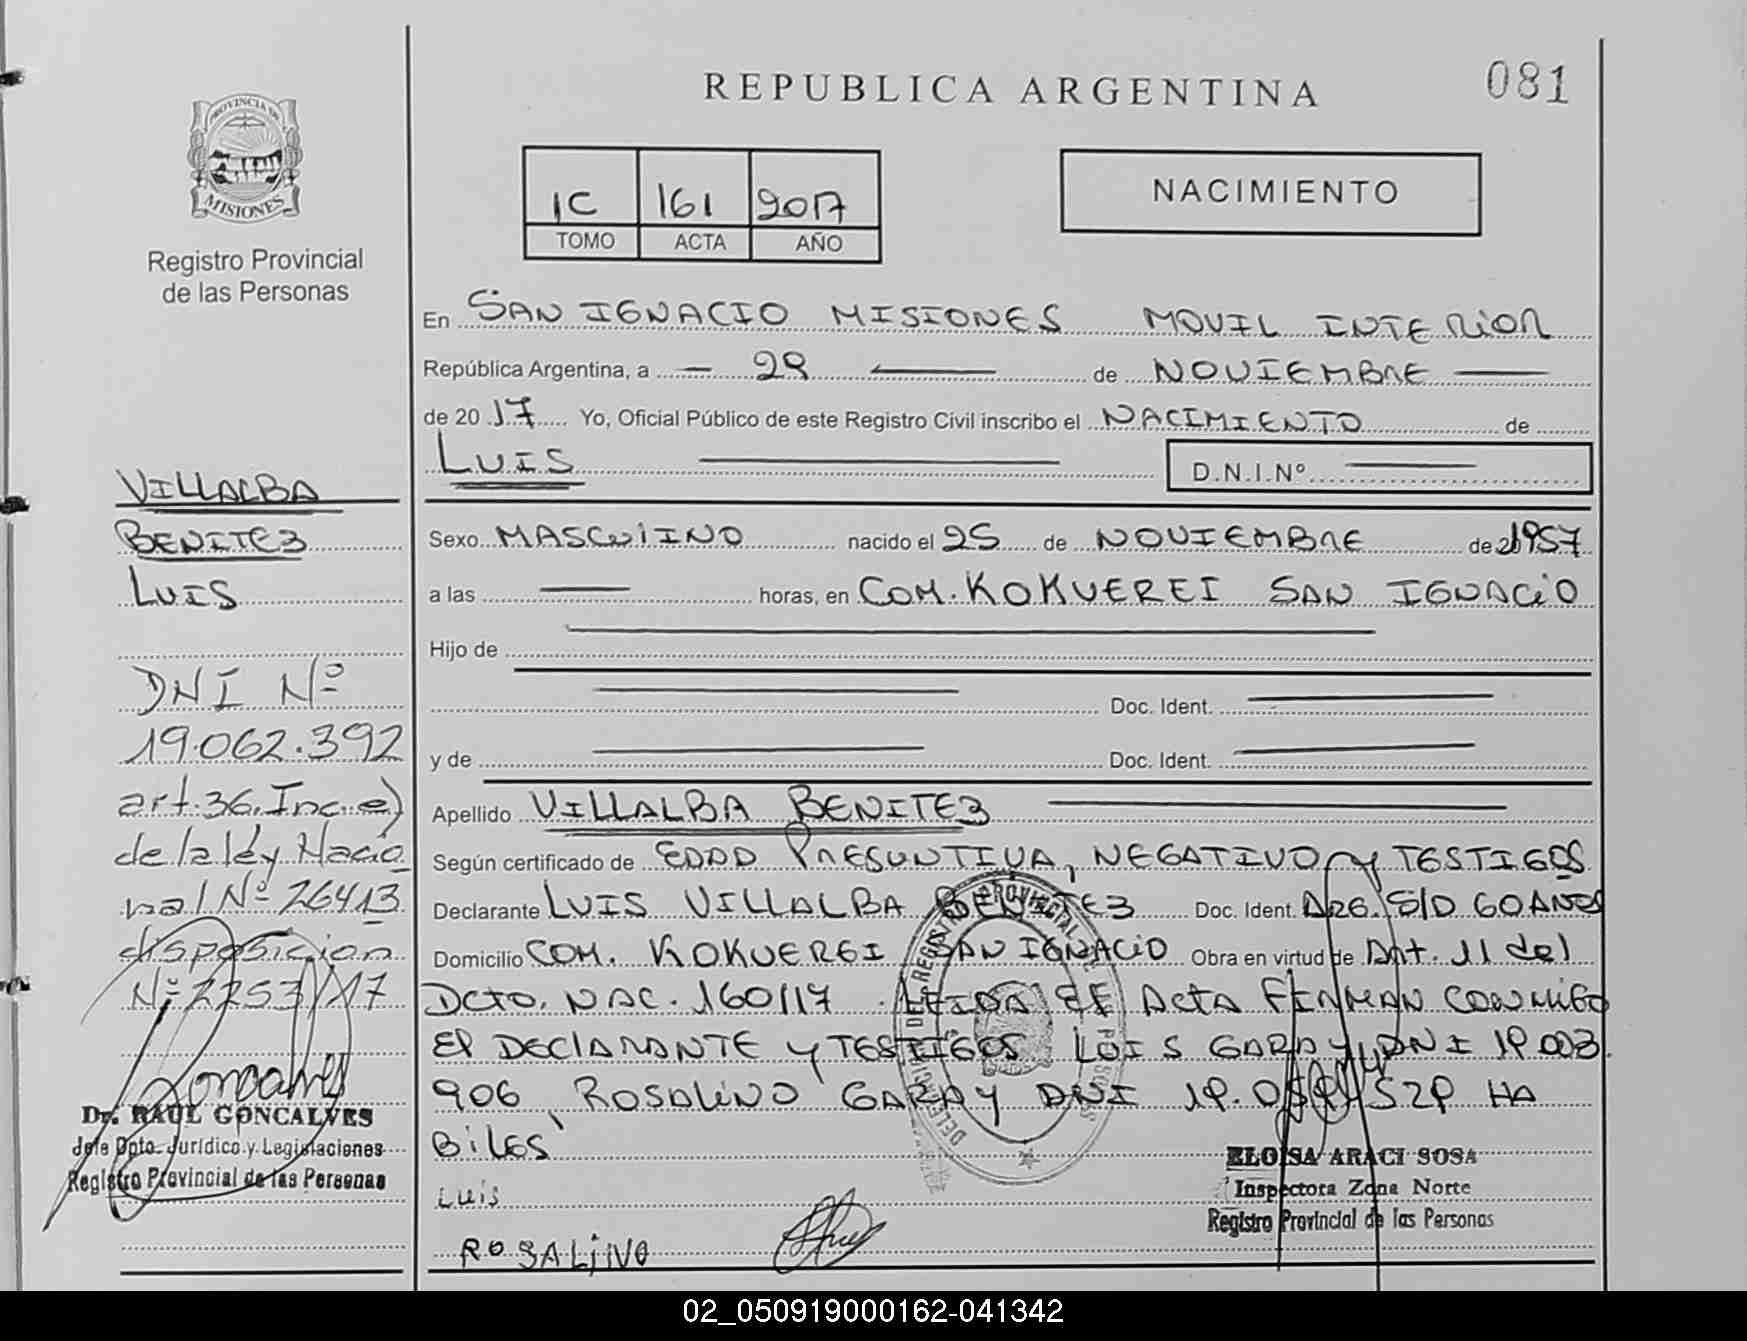 REPUBLICA ARGENTINA
081
PROVINCIA DE
MISIONES
Registro Provincial
de las Personas
1C 161 2017
TOMO ACTA AÑO
NACIMIENTO
En SAN IGNACIO MISIONES MOVIL INTERIOR
República Argentina, a — 29 — de NOVIEMBRE —
de 20 17 Yo, Oficial Público de este Registro Civil inscribo el NACIMIENTO de
LUIS — D.N.I.Nº —
VILLALBA
BENITEZ
LUIS
DNI Nº
19.062.392
art. 36. Inc. e)
de la ley Nacio
nal Nº 26413
disposicion
Nº 2253/17
Dr. RAUL GONCALVES
Jefe Dpto. Jurídico y Legislaciones
Registro Provincial de las Personas
Sexo MASCULINO nacido el 25 de NOVIEMBRE de 1957
a las — horas, en COM. KOKUEREI SAN IGNACIO
Hijo de —
— Doc. Ident. —
y de — Doc. Ident. —
Apellido VILLALBA BENITEZ —
Según certificado de EDAD PRESUNTIVA, NEGATIVO y TESTIGOS
Declarante LUIS VILLALBA BENITEZ Doc. Ident. ARG. S/D 60 AÑOS
Domicilio COM. KOKUEREI SAN IGNACIO Obra en virtud de Art. 11 del
Dcto. NAC. 160/17. LEIDA EL ACTA FIRMAN CONMIGO
El DECLARANTE y TESTIGOS LUIS GARAY DNI 19.003.
906, ROSALINO GARAY DNI 19. 529 HA
BiLES
Luis
ROSALINO
ELOISA ARACI SOSA
Inspectora Zona Norte
Registro Provincial de las Personas
02_050919000162-041342